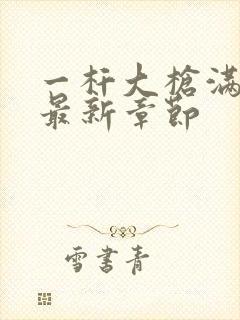 一杆大槍滿
最新章節
雪書青